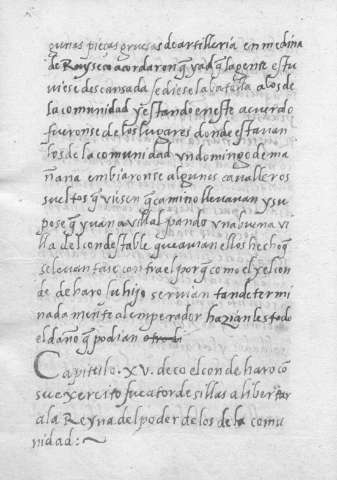 gunas piezas gruesas de artilleria en medina
de Rruyseco acordaron q̃ ya q̃ la gente estu
uiese descansada se diese la batalla a los de
la comunidad y estando en este acuerdo
fueronse de los lugares donde estauan
los de la comunidad vn domingo de ma
ñana embiaronse algunos caualleros
sueltos q̃ viesen q̃ camino lleuauan y su
pose q̃ yuan a villalpando vna buena vi
lla del condestable que auian ellos hecho q̃
se leuantase contra el porq̃ como el y el con
de de haro su hijo seruian tan determi
nadamente al emperador hazianles todo
el daño q̃ podian
Capitulo . XV. de co el conde haro cõ
su exercito fue a tordesillas a libertar
a la Reyna del poder de los de la comu
nidad :~